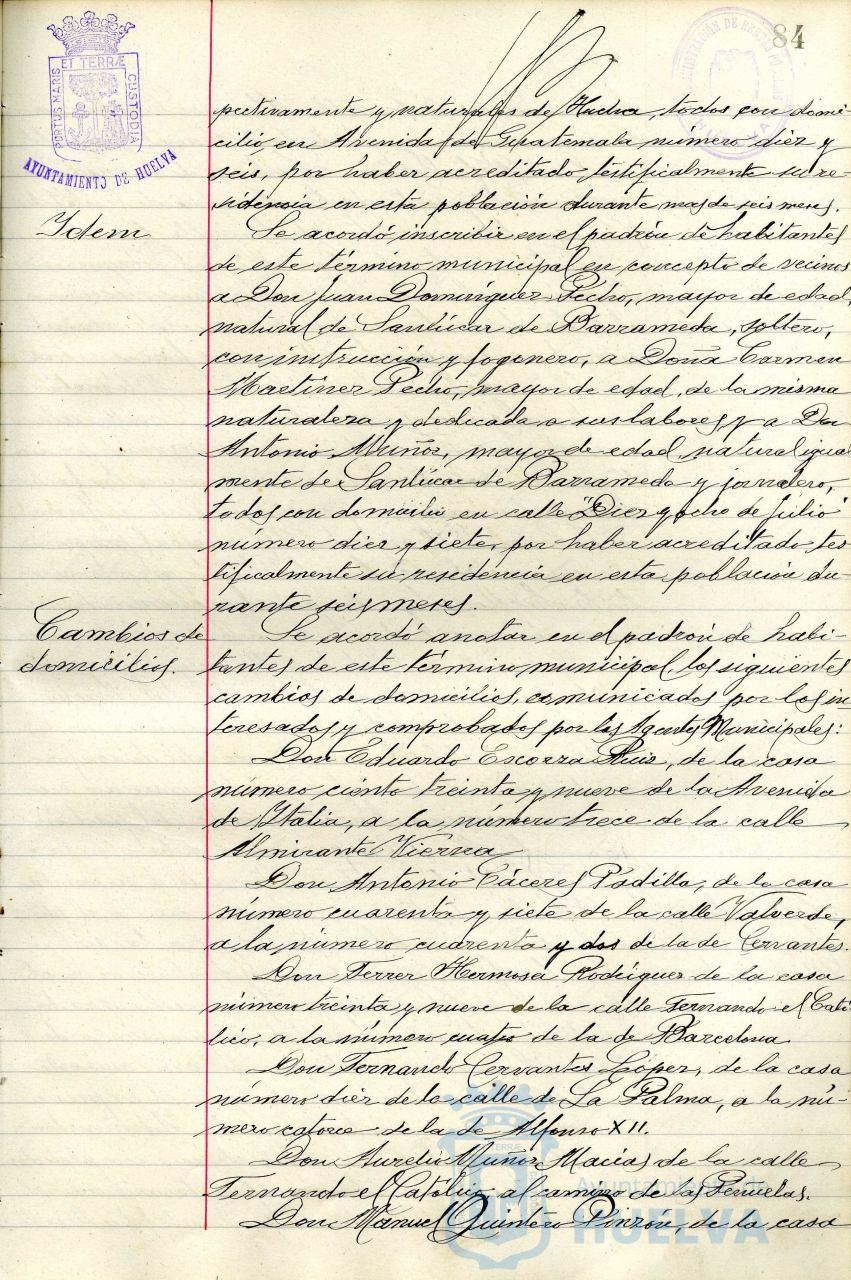 84
PORTUS MARIS ET TERRÆ CUSTODIA
AYUNTAMIENTO DE HUELVA
pectivamente y naturales de Huelva, todos con domi-
cilio en Avenida de Guatemala número diez y
seis, por haber acreditado testificalmente su re-
sidencia en esta población durante mas de seis meses.
Idem
Se acordó inscribir en el padrón de habitantes
de este término municipal en concepto de vecinos
a Don Juan Domínguez Pecho, mayor de edad,
natural de Sanlúcar de Barrameda, soltero,
con instrucción y fogonero, a Doña Carmen
Martínez Pecho, mayor de edad, de la misma
naturaleza y dedicada a sus labores y a Don
Antonio Muñoz, mayor de edad, natural igual
mente de Sanlúcar de Barrameda y jornalero,
todos con domicilio en calle "Diez y ocho de Julio"
número diez y siete, por haber acreditado tes
tificalmente su residencia en esta población du-
rante seis meses.
Cambios de
domicilios.
Se acordó anotar en el padrón de habi-
tantes de este término municipal, los siguientes
cambios de domicilios, comunicados por los in
teresados y comprobados por los Agentes Municipales:
Don Eduardo Escorza Ruiz, de la casa
número ciento treinta y nueve de la Avenida
de Italia, a la número trece de la calle
Almirante Vierna
Don Antonio Cáceres Padilla, de la casa
número cuarenta y siete de la calle Valverde,
a la número cuarenta y dos de la de Cervantes.
Don Ferrer Hermosa Rodríguez de la casa
número treinta y nueve de la calle Fernando el Cató-
lico, a la número cuatro de la de Barcelona
Don Fernando Cervantes López, de la casa
número diez de la calle de La Palma, a la nú-
mero catorce de la de Alfonso XII.
Don Aurelio Muñoz Macías de la calle
Fernando el Católico, al camino de las Peñuelas.
Don Manuel Quintero Pinzón, de la casa
Ayuntamiento de
HUELVA